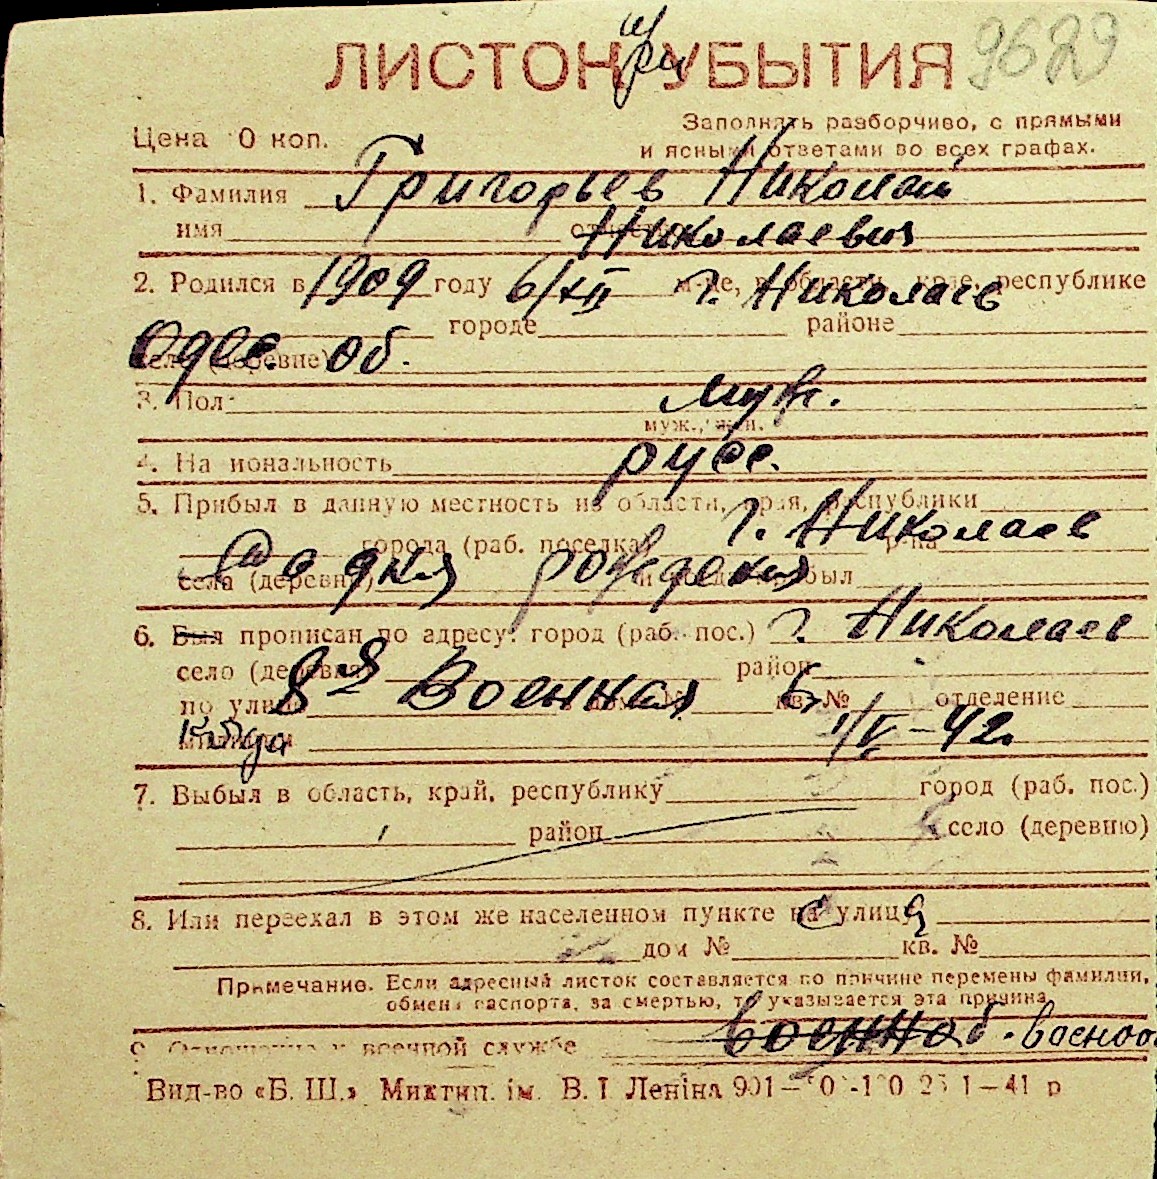 ЛИСТОК при УБЫТИЯ 9629
Цена 0 коп. Заполнять разборчиво, с прямыми
и ясными ответами во всех графах.
1. Фамилия Григорьев Николай
имя Николаевич
2. Родился в 1909 году 6/XII м-це, в области, крае, республике
г. Николаев
городе районе
Одес. об.
село (деревне)
3. Пол муж.
муж., жен.
4. Национальность русс.
5. Прибыл в данную местность из области, края, республики
г. Николаев
города (раб. поселка) р-на
села (деревни) и когда прибыл
Со дня рождения
6. Был прописан по адресу: город (раб. пос.) г. Николаев
село (деревня) район
по улице 8я Военная 6 кв. № отделение
милиции когда 1/V-42.
7. Выбыл в область, край, республику город (раб. пос.)
район село (деревню)
8. Или переехал в этом же населенном пункте с улиця
дом № кв. №
Примечание. Если адресный листок составляется по причине перемены фамилии,
обмена паспорта, за смертью, то указывается эта причина
9. Отношение к военной службе военнооб. военооб
Вид-во «Б. Ш.» Миктип. ім. В. І Леніна